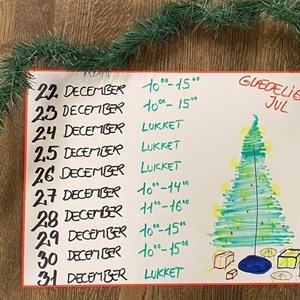 GLÆDELIG
JUL
22 DECEMBER 10⁰⁰-15⁰⁰
23 DECEMBER 10⁰⁰-15⁰⁰
24 DECEMBER LUKKET
25 DECEMBER LUKKET
26 DECEMBER LUKKET
27 DECEMBER 10⁰⁰-14⁰⁰
28 DECEMBER 11⁰⁰-16⁰⁰
29 DECEMBER 10⁰⁰-15⁰⁰
30 DECEMBER 10⁰⁰-15⁰⁰
31 DECEMBER LUKKET